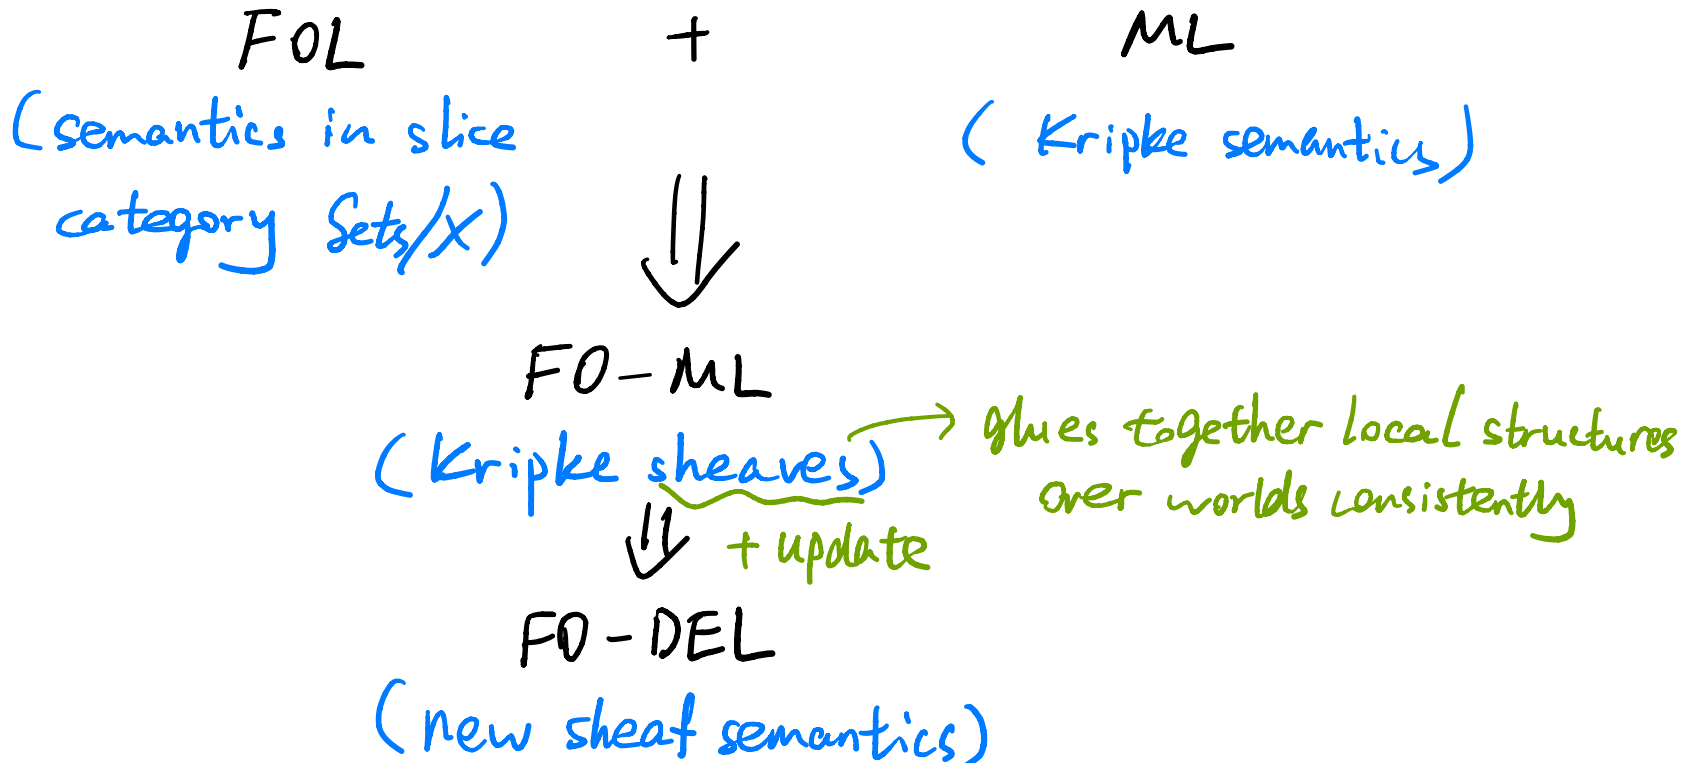 FOL + ML
(semantics in slice
category Sets/X)
(Kripke semantics)
FO-ML
(Kripke sheaves)
glues together local structures
over worlds consistently
+ update
FO-DEL
(new sheaf semantics)